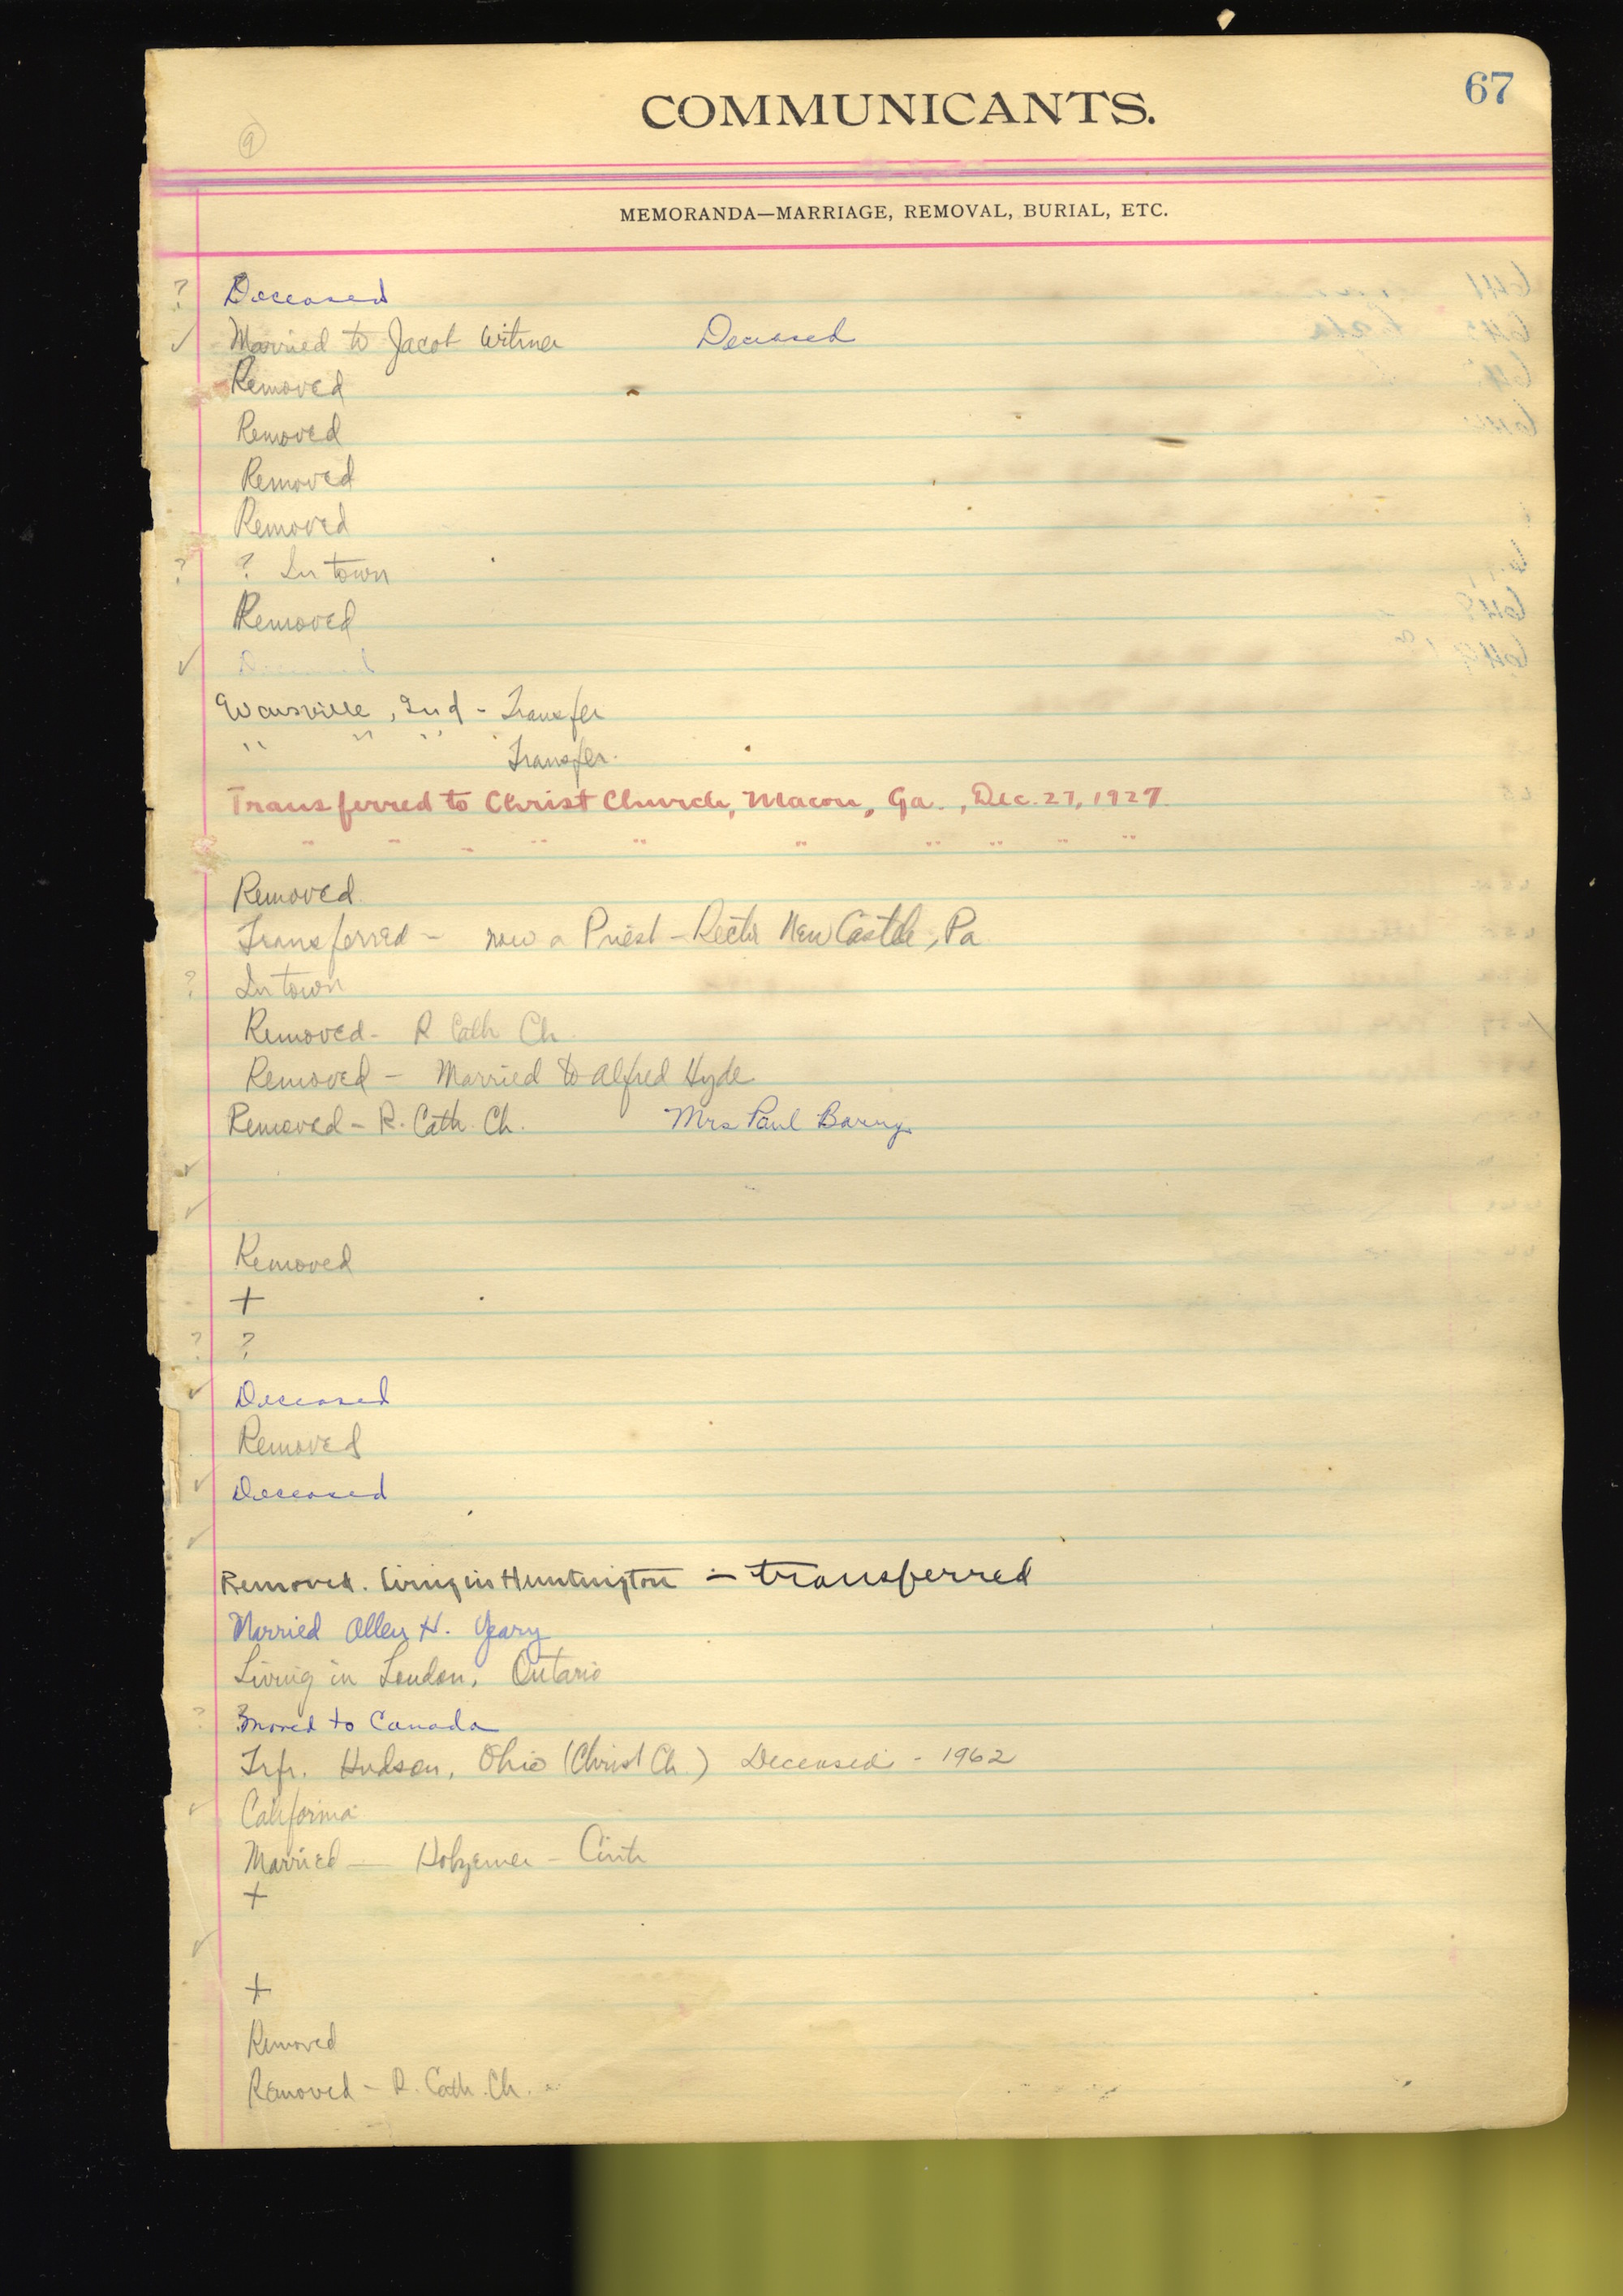 67
COMMUNICANTS.
9
MEMORANDA—MARRIAGE, REMOVAL, BURIAL, ETC.
? Deceased
✓ Married to Jacob Witmer Deceased
Removed
Removed
Removed
Removed
? ? In town
Removed
✓ Deceased
Evansville, Ind - Transfer
" " " Transfer.
Transferred to Christ Church, Macon, Ga., Dec. 27, 1927.
" " " " " " " " " "
Removed
Transferred - now a Priest - Rector New Castle, Pa
? In town
Removed - R Cath Ch.
Removed - Married to Alfred Hyde
Removed - R. Cath. Ch. Mrs Paul
✓
✓
Removed
+
? ?
✓ Deceased
Removed
✓ Deceased
✓
Removed. Living in Huntington - transferred
Married Allen H. Yeary
Living in London, Ontario
? moved to Canada
Trfr. Hudson, Ohio (Christ Ch.) Deceased - 1962
✓ California
Married — Holzemer -
+
✓
+
Removed
Removed - R. Cath. Ch.